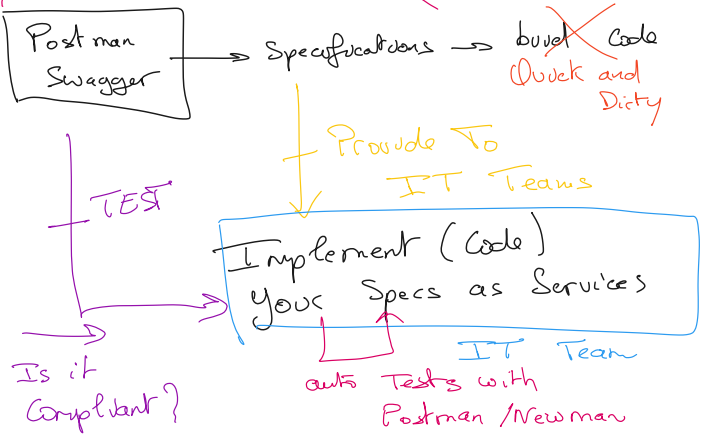 Postman
Swagger
Specifications
build Code
Quick and
Dirty
Provide To
IT Teams
TEST
Implement (Code)
your Specs as Services
IT Team
Is it
Compliant?
auto Tests with
Postman / Newman